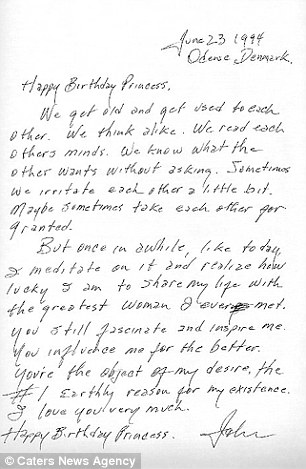 June 23 1994
Odense Denmark.
Happy Birthday Princess,
We get old and get used to each
other. We think alike. We read each
others minds. We know what the
other wants without asking. Sometimes
we irritate each other a little bit.
Maybe sometimes take each other for
granted.
But once in awhile, like today
I meditate on it and realize how
lucky I am to share my life with
the greatest woman I ever met.
You still fascinate and inspire me.
You influence me for the better.
You're the object of my desire, the
#1 Earthly reason for my existence.
I love you very much.
Happy Birthday Princess.
John
© Caters News Agency